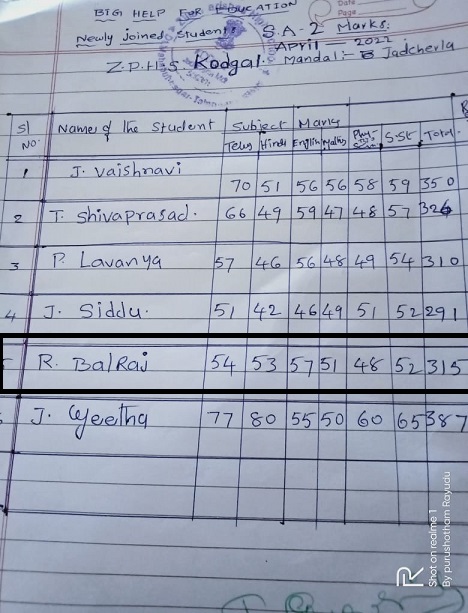 BIG HELP FOR EDUCATION
Date
Page
Newly joined students S.A-2 Marks:
April 2022
Z.P.H.S. Kodgal. Mandal:- Jadcherla
Sl No. Name of the Student Subject Marks
Telugu Hindi English Maths S.St Total
1 J. Vaishnavi 70 51 56 56 58 59 350
2 T. Shivaprasad. 66 49 59 47 48 57 326
3 P. Lavanya 57 46 56 48 49 54 310
4 J. Siddu. 51 42 46 49 51 52 291
R. BalRaj 54 53 57 51 48 52 315
J. Geetha 77 80 55 50 60 65 387
Shot on realme 1
By purushotham Rayudu